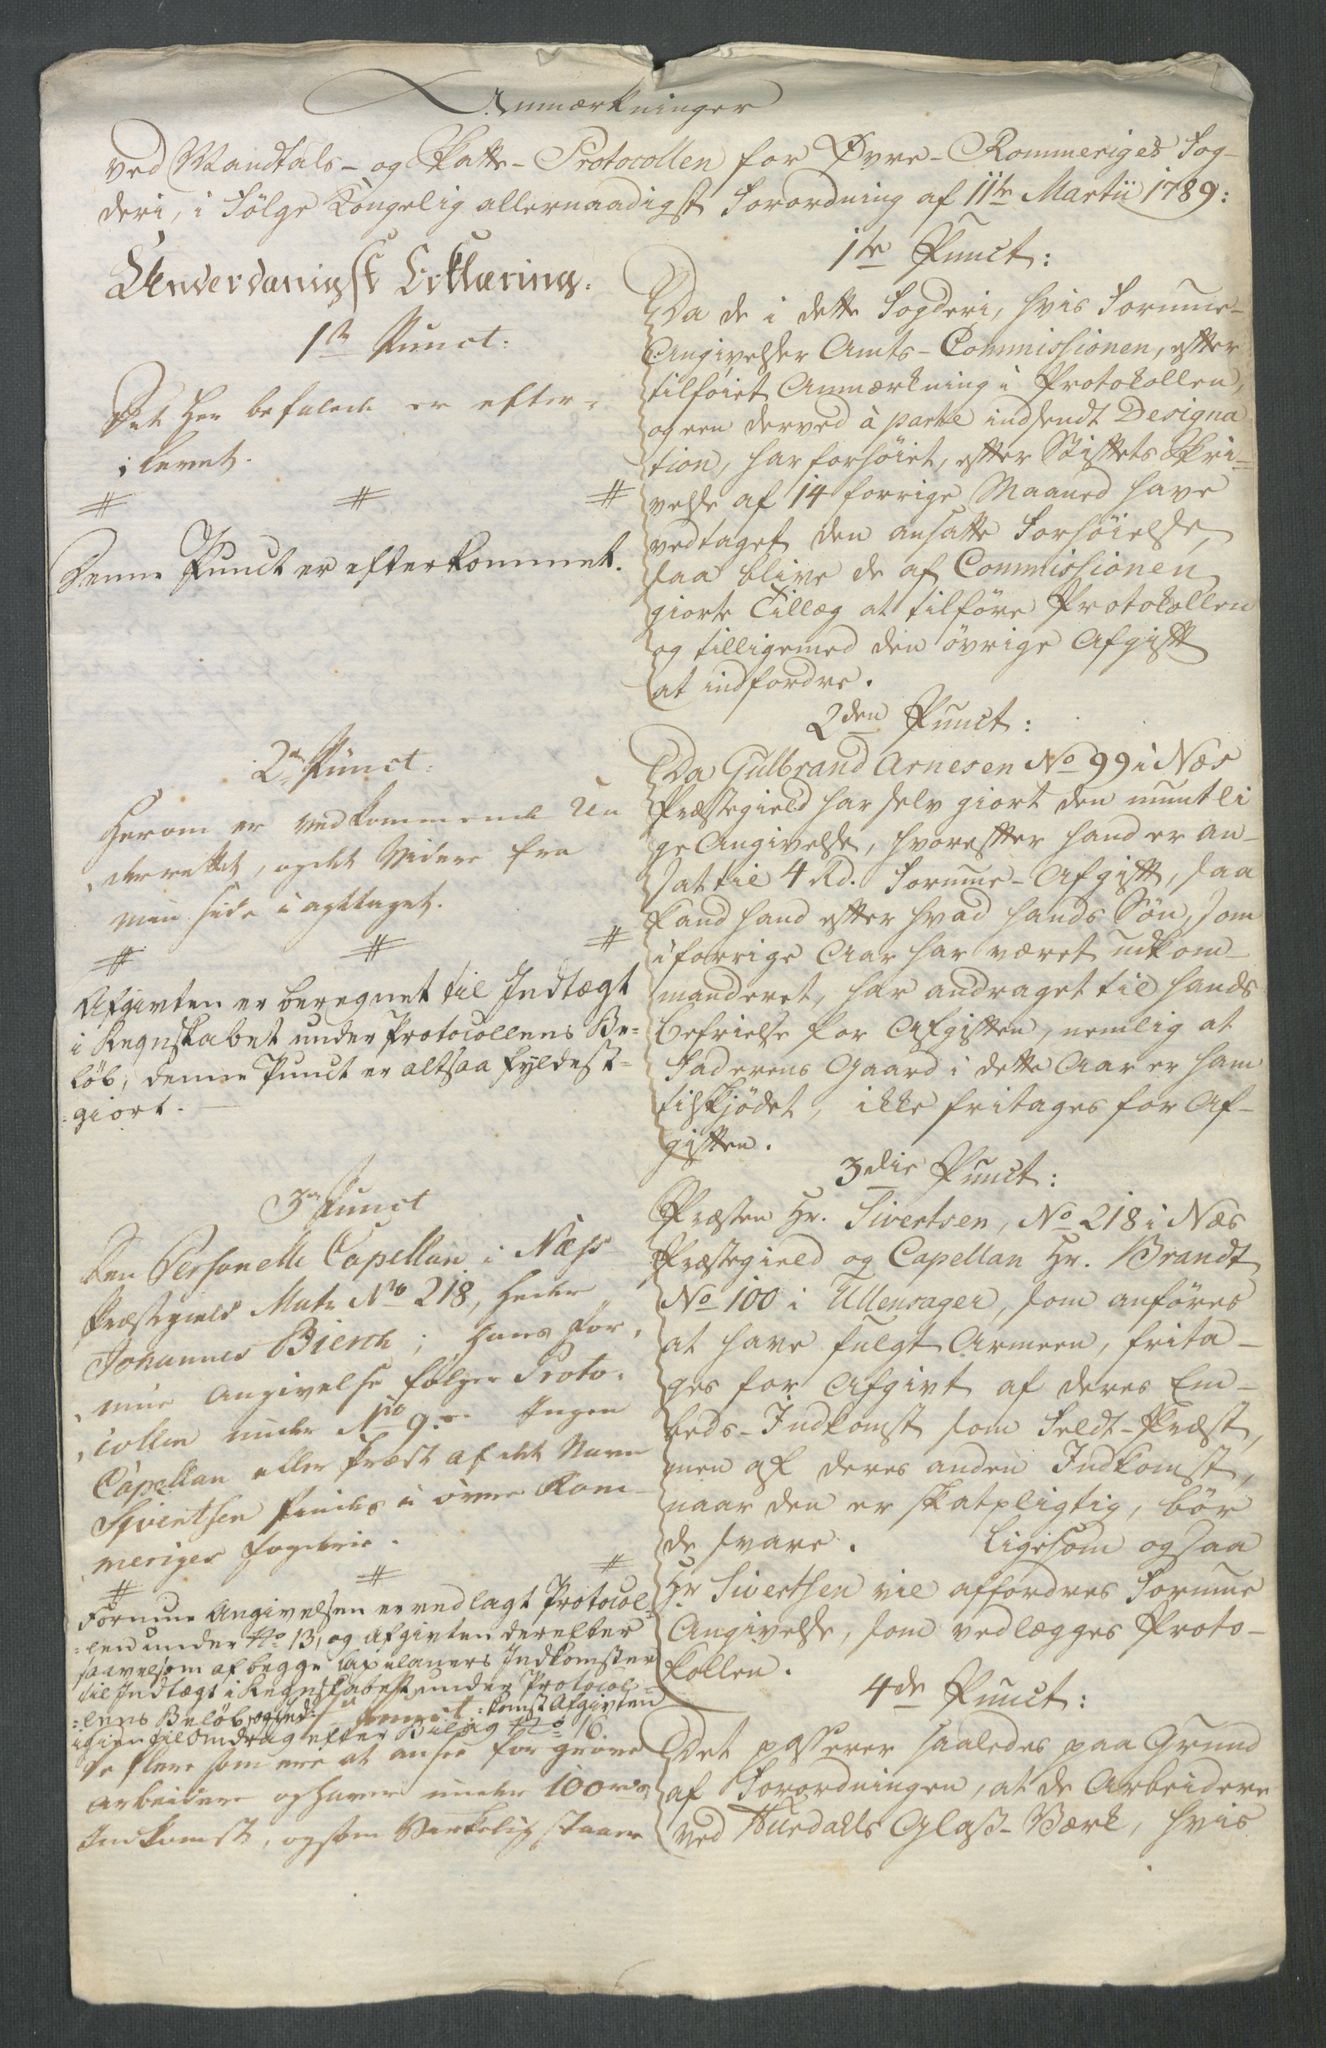 Anmærkninger
ved Mandtals- og Skatte-Protocollen for Øvre-Rommeriges Fog-
deri, i Følge Kongelig allernaadigst Forordning af 11te Martii 1789:
Underdanigst Erklæring.
1te Punct:
Det her befalede er efter-
levet.
# # #
Denne Punct er efterkommet.
2den Punct:
Herom er vedkommende Un
derrettet, og det Videre fra
min side iagttaget.
# # #
Afgivten er beregnet til Indtægt
i Regnskabet under Protocollens Be-
løb, denne Punct er altsaa fyldest-
giort.
3die Punct
Den Personelle Capellan i Næss
Præstegield Matr No 218, heder
Johannes Bierch; hans For-
mue Angivelse følger Proto-
collen under No 9. Ingen
Capellan eller Præst af det Navn
Sivertsen findes i øvre Rom-
meriges fogderie.
# # #
Formue Angivelsen er vedlagt Protocol-
len under No B, og Afgivten derefter
saavelsom af begge Capelaners Indkomster
til Indtægt i Regnskabet under Protocol-
lens Beløb, og Indkomst Afgivten
igien til Omdrag efter Bilag No 16.
De fleere som ere at ansee for grove
Arbeidere og haver under 100 rd
Indkomst, og som Verkelig staaer
1te Punct:
Da de i dette Fogderi, hvis Formue-
Angivelser Amts-Commissionen, efter
tilføiet Anmærkning i Protokollen,
og een derved à parte indsendt Designa
tion, har forhøiet, efter Stiftets Skri-
velse af 14 forrige Maaned have
vedtaget den ansatte Forhøielse,
saa blive de af Commissionen
giorte Tillæg at tilføre Protokollen
og tilligemed den øvrige Afgift
at indfordre.
2den Punct:
Da Gulbrand Arnesen No 99 i Næs
Præstegield har selv giort den mundtli
ge Angivelse, hvorefter hand er an-
sat til 4 Rd. Formue-Afgift, saa
kand hand efter hvad hands Søn, som
i forrige Aar har været udkom-
manderet, har andraget til hands
befrielse for Afgiften, nemlig at
Faderens Gaard i dette Aar er ham
tilskjødet, ikke fritages for Af-
giften.
3die Punct:
Præsten Hr. Sivertsen, No 218 i Næs
Præstegield og Capellan Hr. Brandt
No 100 i Ullensager, som anføres
at have fulgt Armeen, frita-
ges for Afgivt af deres Em-
beds-Indkomst som Feldt-Præst,
men af deres anden Indkomst,
naar den er skatpligtig, bør
de svare. Ligesom ogsaa
Hr Sivertsen vil affordres Formue
Angivelse, som vedlægges Proto-
kollen.
4de Punct:
Det passerer saaledes paa Grund
af Forordningen, at de Arbeidere
ved Hurdahls Glas-Værk, hvis